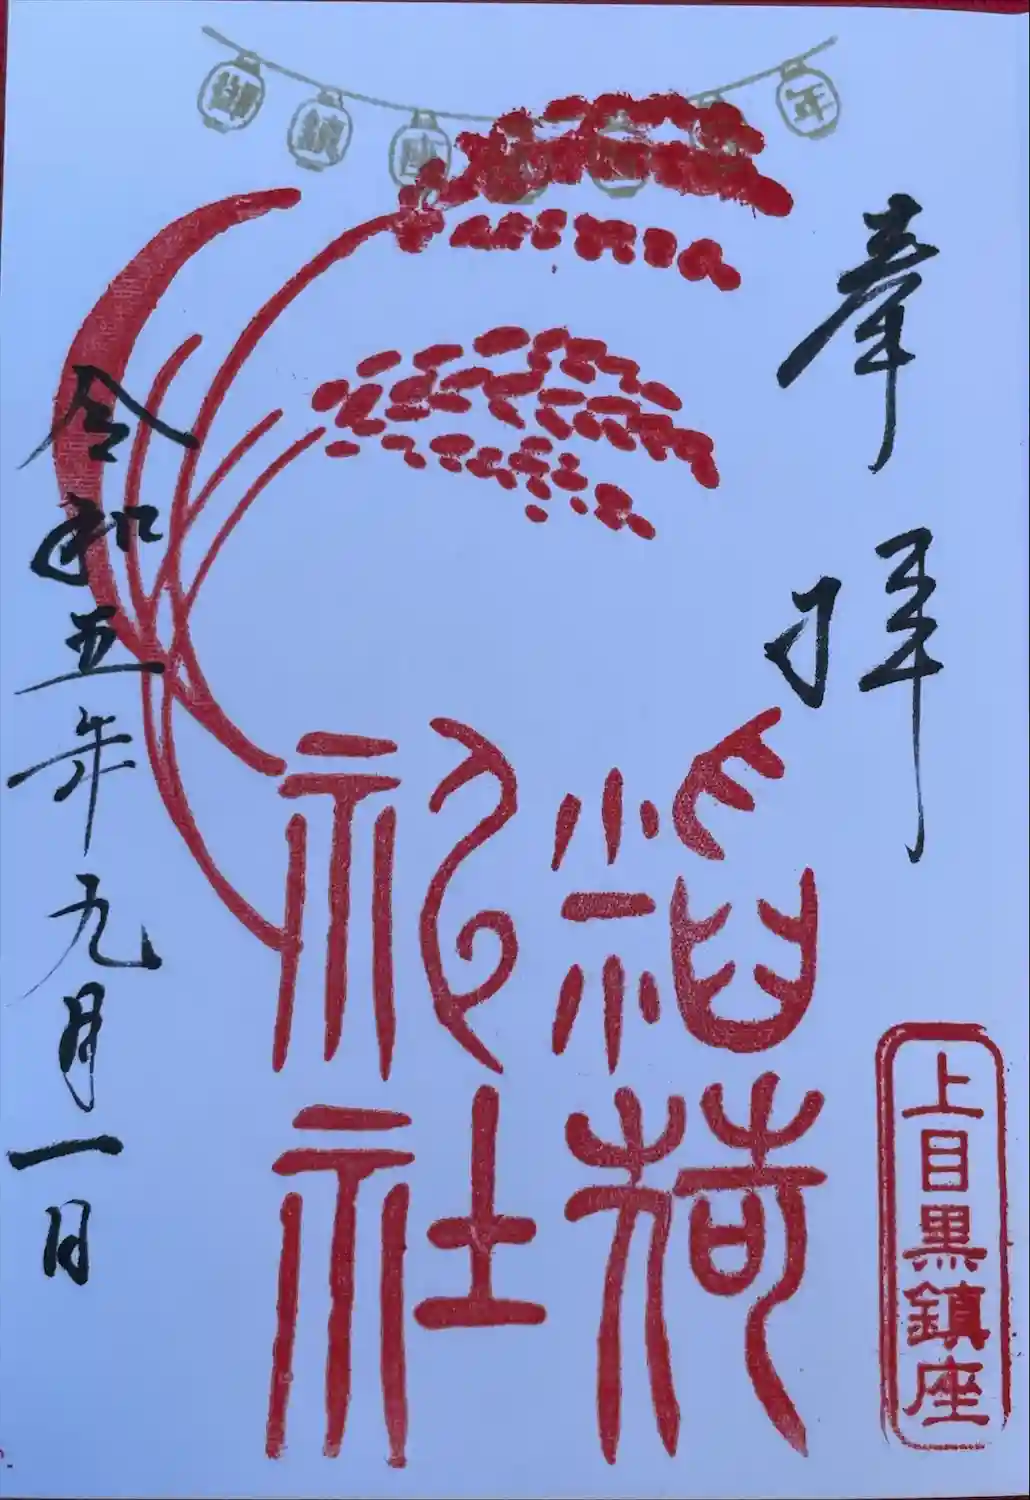 御鎮座年
奉拝
上目黒鎮座
稲荷
神社
令和五年九月一日